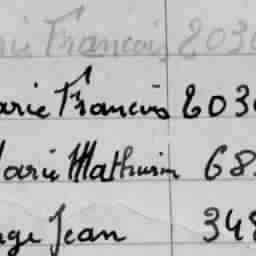 rie Francois 2030
arie Francois 2030
Marie Mathurin 68
nge Jean 348